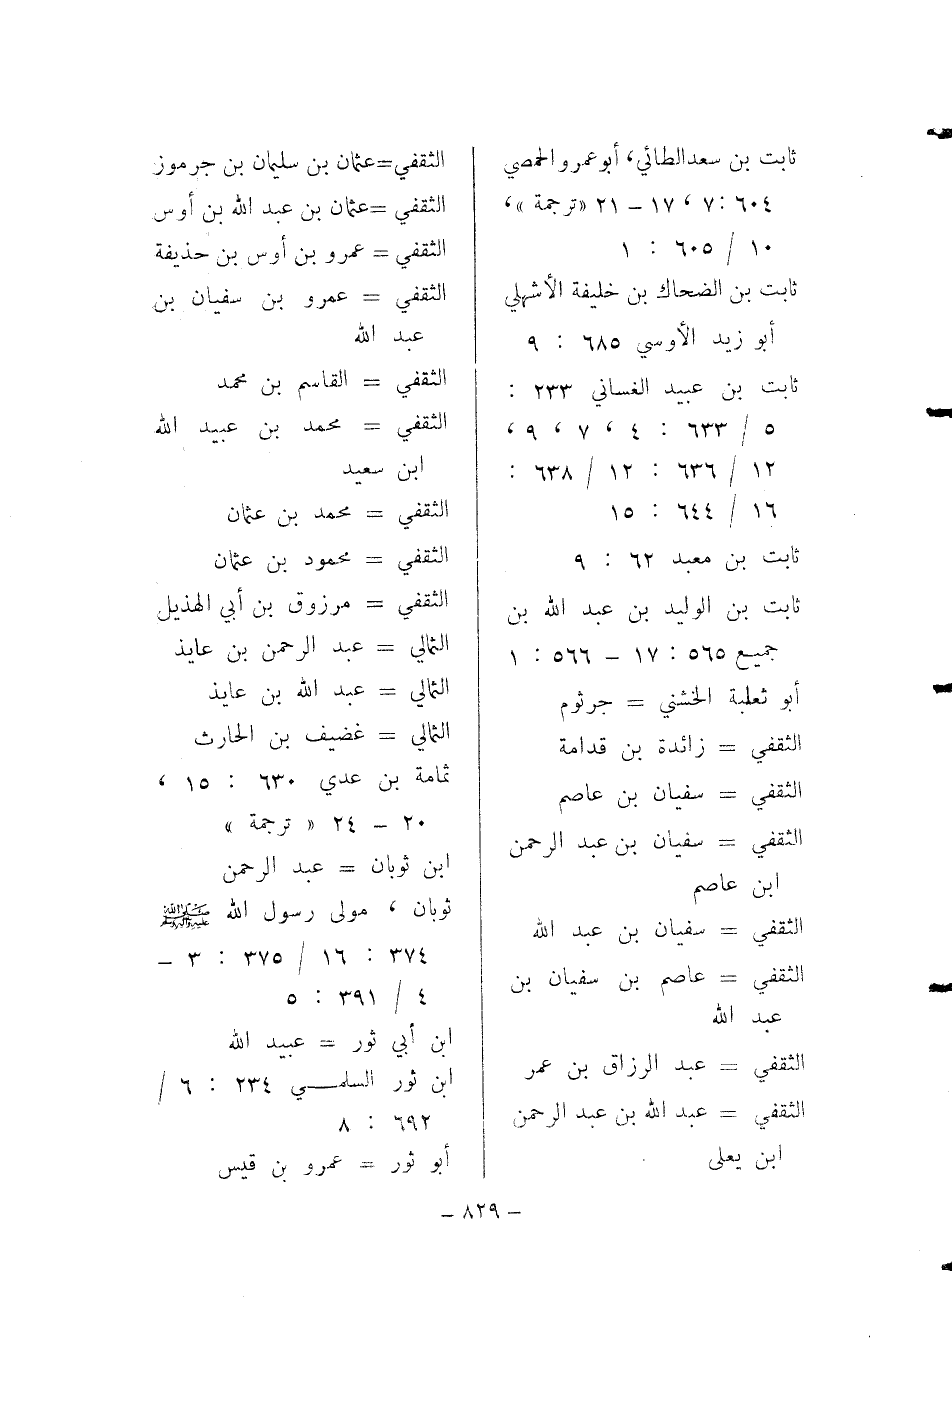 ثابت بن سعد الطائي، أبو عمرو الحمصي
٦٠٤ : ٧ ، ١٧ – ٢١ « ترجمة »،
١٠ / ٦٠٥ : ١
ثابت بن الضحاك بن خليفة الأشهلي
أبو زيد الأوسي ٦٨٥ : ٩
ثابت بن عبيد الغساني ٢٣٣ :
٥ / ٦٣٣ : ٤ ، ٧ ، ٩ ،
١٢ / ٦٣٦ : ١٢ / ٦٣٨ :
١٦ / ٦٤٤ : ١٥
ثابت بن معبد ٦٢ : ٩
ثابت بن الوليد بن عبد الله بن
جميع ٥٦٥ : ١٧ – ٥٦٦ : ١
أبو ثعلبة الخشني = جرثوم
الثقفي = زائدة بن قدامة
الثقفي = سفيان بن عاصم
الثقفي = سفيان بن عبد الرحمن
ابن عاصم
الثقفي = سفيان بن عبد الله
الثقفي = عاصم بن سفيان بن
عبد الله
الثقفي = عبد الرزاق بن عمر
الثقفي = عبد الله بن عبد الرحمن
ابن يعلى
الثقفي = عثمان بن سليمان بن جرموز
الثقفي = عثمان بن عبد الله بن أوس
الثقفي = عمرو بن أوس بن حذيفة
الثقفي = عمرو بن سفيان بن
عبد الله
الثقفي = القاسم بن محمد
الثقفي = محمد بن عبيد الله
ابن سعيد
الثقفي = محمد بن عثمان
الثقفي = محمود بن عثمان
الثقفي = مرزوق بن أبي الهذيل
الثمالي = عبد الرحمن بن عايذ
الثمالي = عبد الله بن عايذ
الثمالي = غضيف بن الحارث
ثمامة بن عدي ٦٣٠ : ١٥ ،
٢٠ – ٢٤ « ترجمة »
ابن ثوبان = عبد الرحمن
ثوبان ، مولى رسول الله ﷺ
٣٧٤ : ١٦ / ٣٧٥ : ٣ –
٤ / ٣٩١ : ٥
ابن أبي ثور = عبيد الله
ابن ثور السلمي ٢٣٤ : ٦ /
٦٩٢ : ٨
أبو ثور = عمرو بن قيس
– ٨٢٩ –